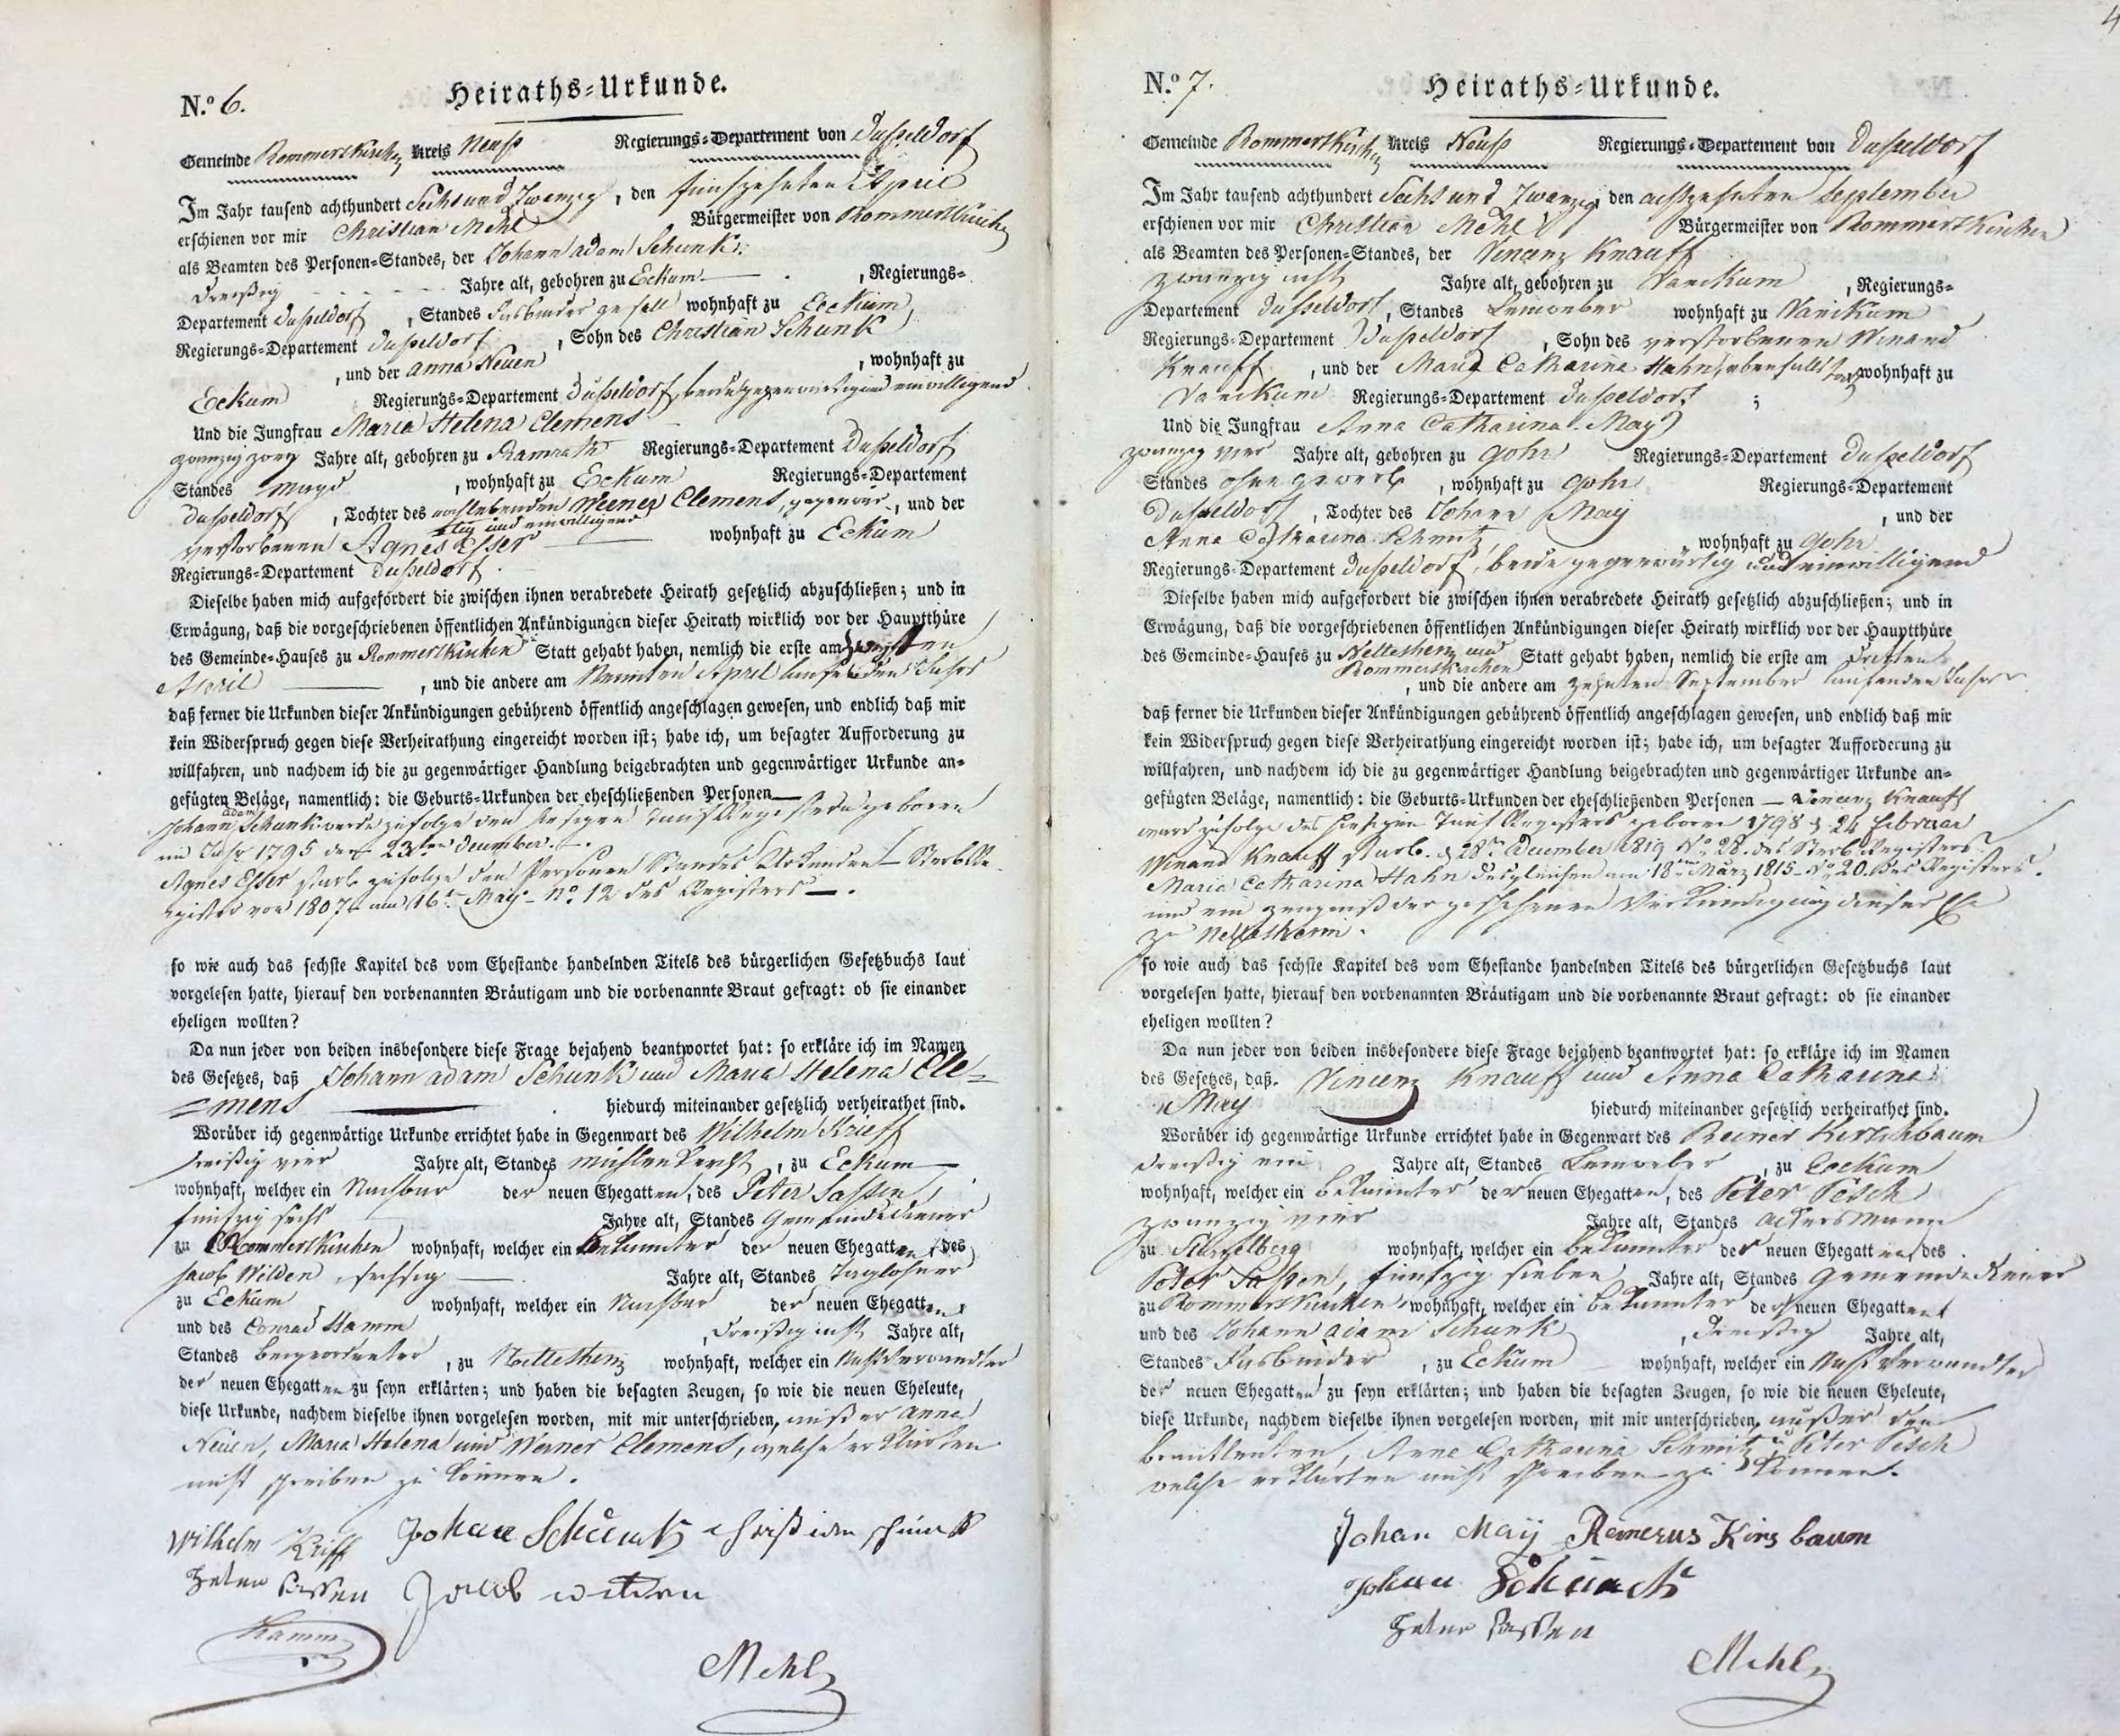 N.º 6. Heiraths-Urkunde.
Gemeinde Rommerskirchen Kreis Neuss Regierungs-Departement von Dusseldorf
Im Jahr tausend achthundert Sechs und Zwanzig, den fünfzehnten April
erschienen vor mir Christian Mehl Bürgermeister von Rommerskirchen
als Beamten des Personen-Standes, der Johann adam Schunk.
Dreißig Jahre alt, gebohren zu Eckum , Regierungs-
Departement Dusseldorf, Standes Fasbinder gesell wohnhaft zu Eckum,
Regierungs-Departement Dusseldorf, Sohn des Christian Schunk
, und der Anna Neuen , wohnhaft zu
Eckum Regierungs-Departement Dusseldorf, beide gegenwärtig und einwilligend
Und die Jungfrau Maria Helena Clemens
zwanzig zwey Jahre alt, gebohren zu Ramrath Regierungs-Departement Dusseldorf
Standes Magd, wohnhaft zu Eckum Regierungs-Departement
Dusseldorf, Tochter des noch lebenden Werner Clemens, gegenwär-, und der
tig und einwilligend
verstorbenen Agnes Esser wohnhaft zu Eckum
Regierungs-Departement Dusseldorf.
Dieselbe haben mich aufgefordert die zwischen ihnen verabredete Heirath gesetzlich abzuschließen; und in
Erwägung, daß die vorgeschriebenen öffentlichen Ankündigungen dieser Heirath wirklich vor der Hauptthüre
des Gemeinde-Hauses zu Rommerskirchen Statt gehabt haben, nemlich die erste am zweiten
April , und die andere am Neunten April laufenden Jahrs
daß ferner die Urkunden dieser Ankündigungen gebührend öffentlich angeschlagen gewesen, und endlich daß mir
kein Widerspruch gegen diese Verheirathung eingereicht worden ist; habe ich, um besagter Aufforderung zu
willfahren, und nachdem ich die zu gegenwärtiger Handlung beigebrachten und gegenwärtiger Urkunde an-
gefügten Beläge, namentlich: die Geburts-Urkunden der eheschließenden Personen
Johann adam Schunk wurde zufolge den hiesigen Taufregistern geboren
im Jahr 1795 den 23ten December.
Agnes Esser starb zufolge den Personen Standes Urkunden Sterbre-
gister von 1807 am 16t May - No. 12 des Registers.
so wie auch das sechste Kapitel des vom Ehestande handelnden Titels des bürgerlichen Gesetzbuchs laut
vorgelesen hatte, hierauf den vorbenannten Bräutigam und die vorbenannte Braut gefragt: ob sie einander
eheligen wollten?
Da nun jeder von beiden insbesondere diese Frage bejahend beantwortet hat: so erkläre ich im Namen
des Gesetzes, daß Johann adam Schunk und Maria Helena Cle-
mens hiedurch miteinander gesetzlich verheirathet sind.
Worüber ich gegenwärtige Urkunde errichtet habe in Gegenwart des Wilhelm Krieff
dreißig vier Jahre alt, Standes Mühlenknecht, zu Eckum
wohnhaft, welcher ein Nachbar der neuen Ehegatten, des Peter Sassen,
fünfzig sechs Jahre alt, Standes Gemeindediener
zu Rommerskirchen wohnhaft, welcher ein bekannter der neuen Ehegatten, des
Jacob Wilden, sechszig Jahre alt, Standes Taglohner
zu Eckum wohnhaft, welcher ein Nachbar der neuen Ehegatten,
und des Conrad Hamm , Dreißig acht Jahre alt,
Standes beigeordneter, zu wohnhaft, welcher ein Nicht Verwandter
der neuen Ehegatten zu seyn erklärten; und haben die besagten Zeugen, so wie die neuen Eheleute,
diese Urkunde, nachdem dieselbe ihnen vorgelesen worden, mit mir unterschrieben, außer Anna
Neuen, Maria Helena und Werner Clemens, welche erklärten
nicht schreiben zu können.
Wilhelm Kriff Johan Schunk christian schunck
Peter Sassen Jacob wilden
Hamm
Mehl
N.º 7. Heiraths-Urkunde.
Gemeinde Rommerskirchen Kreis Neuss Regierungs-Departement von Dusseldorf
Im Jahr tausend achthundert Sechs und Zwanzig den achtzehnten September
erschienen vor mir Christian Mehl Bürgermeister von Rommerskirchen
als Beamten des Personen-Standes, der Vincenz Knauff
zwanzig acht Jahre alt, gebohren zu Vanikum , Regierungs-
Departement Dusseldorf, Standes Leinweber wohnhaft zu Vanikum
Regierungs-Departement Dusseldorf , Sohn des verstorbenen Winand
Knauff , und der Maria Catharina Hahn, ebenfalls wohnhaft zu
Vanikum Regierungs-Departement Dusseldorf ;
Und die Jungfrau Anna Catharina May
zwanzig vier Jahre alt, gebohren zu Gohr Regierungs-Departement Dusseldorf
Standes ohne gewerb, wohnhaft zu Gohr Regierungs-Departement
Dusseldorf, Tochter des Johann May , und der
Anna Catharina Schmitz , wohnhaft zu Gohr
Regierungs-Departement Dusseldorf, beide gegenwärtig und einwilligend
Dieselbe haben mich aufgefordert die zwischen ihnen verabredete Heirath gesetzlich abzuschließen; und in
Erwägung, daß die vorgeschriebenen öffentlichen Ankündigungen dieser Heirath wirklich vor der Hauptthüre
des Gemeinde-Hauses zu Nettesheim und Rommerskirchen Statt gehabt haben, nemlich die erste am dritten
, und die andere am zehnten September laufenden Jahrs
daß ferner die Urkunden dieser Ankündigungen gebührend öffentlich angeschlagen gewesen, und endlich daß mir
kein Widerspruch gegen diese Verheirathung eingereicht worden ist; habe ich, um besagter Aufforderung zu
willfahren, und nachdem ich die zu gegenwärtiger Handlung beigebrachten und gegenwärtiger Urkunde an-
gefügten Beläge, namentlich: die Geburts-Urkunden der eheschließenden Personen — Vincenz Knauff
ward zufolge des hiesigen Tauf Registers geboren 1798 d 24 Februar
Winand Knauff starb d 28ten December 1819 No. 28. des Sterb Registers.
Maria Catharina Hahn desgleichen am 18ten März 1815 - No. 20. des Registers.
und ein zeugniß der geschehenen Verkündigung dieser Ehe
zu Nettesheim.
so wie auch das sechste Kapitel des vom Ehestande handelnden Titels des bürgerlichen Gesetzbuchs laut
vorgelesen hatte, hierauf den vorbenannten Bräutigam und die vorbenannte Braut gefragt: ob sie einander
eheligen wollten?
Da nun jeder von beiden insbesondere diese Frage bejahend beantwortet hat: so erkläre ich im Namen
des Gesetzes, daß Vincenz Knauff und Anna Catharina
May hiedurch miteinander gesetzlich verheirathet sind.
Worüber ich gegenwärtige Urkunde errichtet habe in Gegenwart des Reiner Kirschbaum
dreißig ein Jahre alt, Standes Leinweber , zu Eckum
wohnhaft, welcher ein bekannter der neuen Ehegatten, des Peter Pesch
zwanzig vier Jahre alt, Standes Ackersmann
zu wohnhaft, welcher ein bekannter der neuen Ehegatten, des
Peter Sassen, fünfzig sieben Jahre alt, Standes Gemeindediener
zu Rommerskirchen wohnhaft, welcher ein bekannter der neuen Ehegatten,
und des Johann adam Schunk , dreißig Jahre alt,
Standes Fasbinder , zu Eckum wohnhaft, welcher ein Nicht Verwandter
der neuen Ehegatten zu seyn erklärten; und haben die besagten Zeugen, so wie die neuen Eheleute,
diese Urkunde, nachdem dieselbe ihnen vorgelesen worden, mit mir unterschrieben, außer den
brautleuten, Anna Catharina Schmitz u Peter Pesch
welche erklärten nicht schreiben zu können.
Johan Maÿ Reinerus Kirsbaum
Johan Schunck
Peter Sassen
Mehl